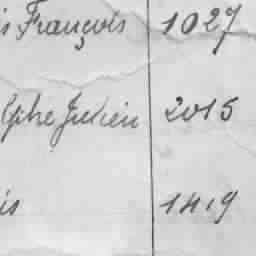 is François 1027
lphe Julien 2015
is 1419